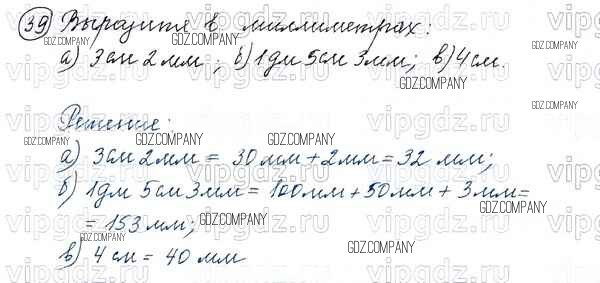 39 Выразите в миллиметрах:
а) 3см 2мм; б) 1дм 5см 3мм; в) 4см.
Решение:
а) 3см 2мм = 30мм + 2мм = 32 мм;
б) 1дм 5см 3мм = 100мм + 50мм + 3мм =
= 153мм;
в) 4см = 40мм